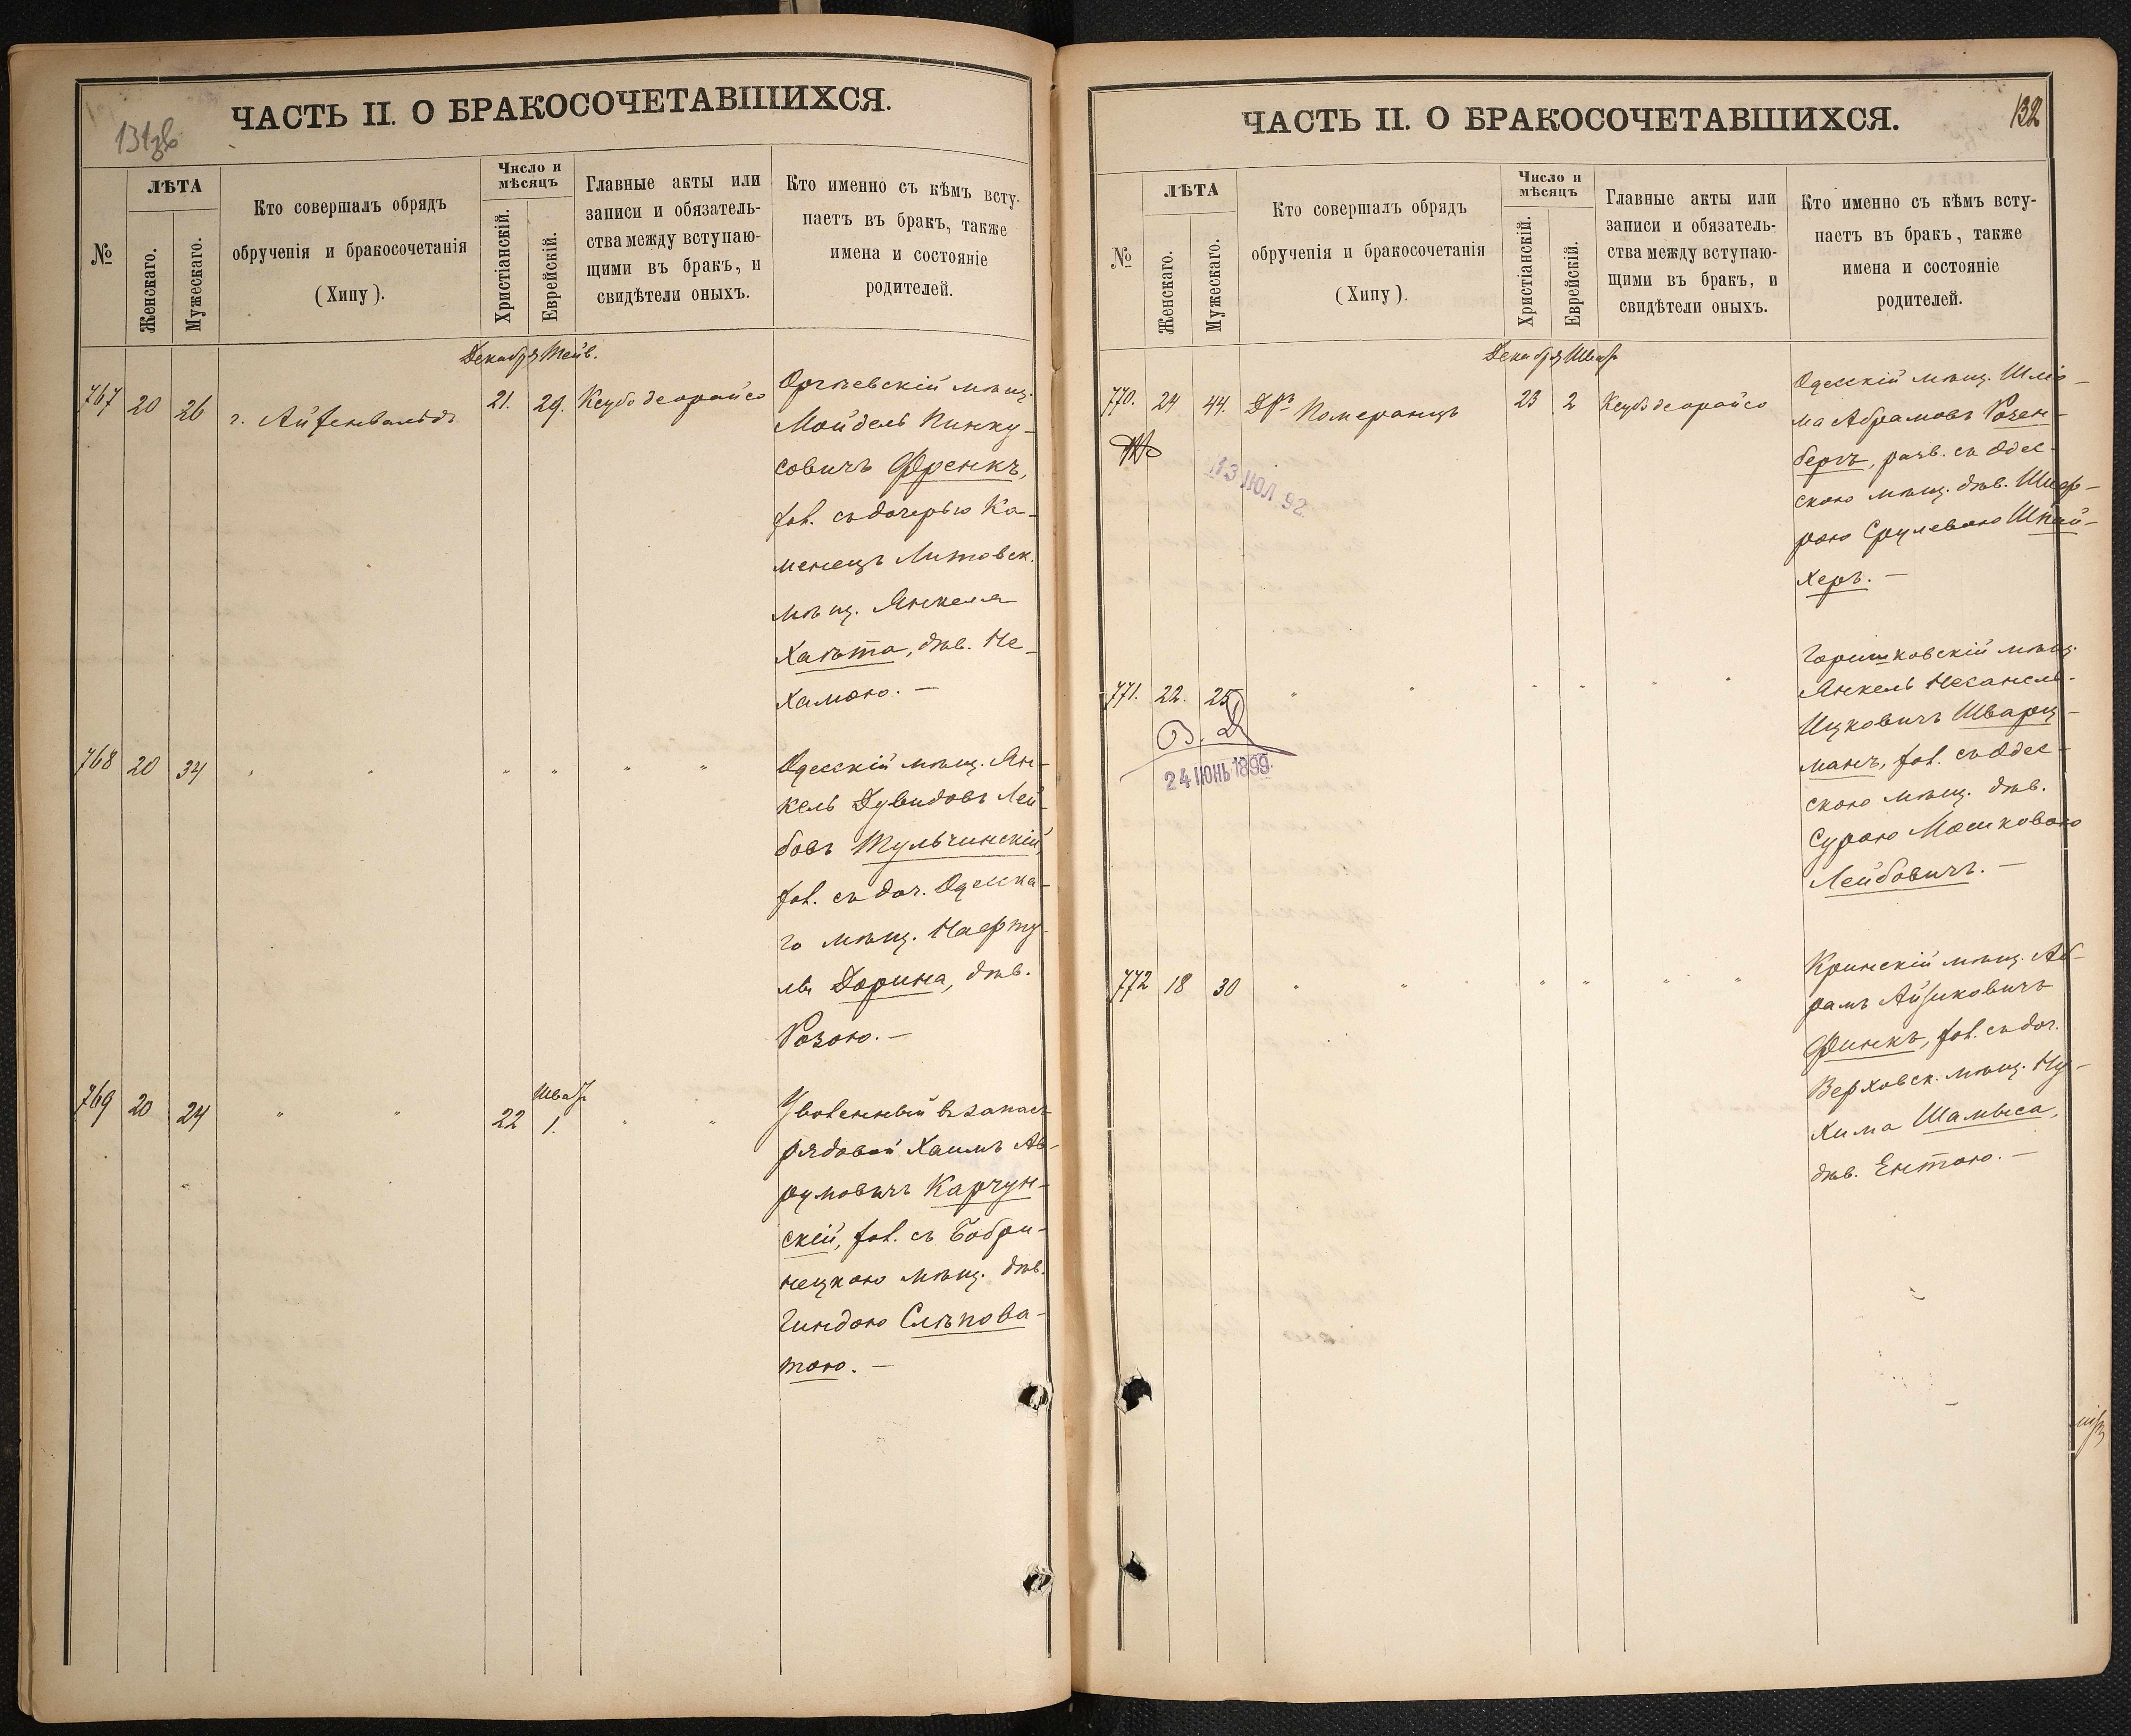 ЧАСТЬ II. О БРАКОСОЧЕТАВШИХСЯ.
№
ЛѢТА
Женскаго.
Мужескаго.
Кто совершалъ обрядъ
обрученія и бракосочетанія
(Хипу).
Число и
мѣсяцъ
Христіанскій.
Еврейскій.
Главные акты или
записи и обязатель-
ства между вступаю-
щими въ бракъ, и
свидѣтели оныхъ.
Кто именно съ кѣмъ всту-
паетъ въ бракъ, также
имена и состояніе
родителей.
Декабря Тейв.
767 20 26 г. Айзенвальдъ 21. 29. Кеубо деорайсо
Оргѣевскій мѣщ.
Мойдель Пинку-
совичъ Френкъ,
хол. съ дочерью Ка-
менецъ Литовск.
мѣщ. Янкеля
Хагъта, дѣв. Не-
хамою. —
768 20 34 " " " " " "
Одесскій мѣщ. Ян-
кель Дувидовъ Лей-
бовъ Тульчинскій,
хол. съ доч. Одесска-
го мѣщ. Нафту-
лы Дорина, дѣв.
Розою. —
Шват
769 20 24 " " 22 1. " "
Уволенный въ запасъ
рядовой Хаимъ Ав-
румовичъ Карчун-
скій, хол. съ Бобри-
нецкою мѣщ. дѣв.
Гиндою Слѣпова-
тою. —
ЧАСТЬ II. О БРАКОСОЧЕТАВШИХСЯ.
132
№
ЛѢТА
Женскаго.
Мужескаго.
Кто совершалъ обрядъ
обрученія и бракосочетанія
(Хипу).
Число и
мѣсяцъ
Христіанскій.
Еврейскій.
Главные акты или
записи и обязатель-
ства между вступаю-
щими въ бракъ, и
свидѣтели оныхъ.
Кто именно съ кѣмъ всту-
паетъ въ бракъ, также
имена и состояніе
родителей.
Декабря Шват
770. 24 44. Др. Померанцъ 23 2 Кеубо деорайсо
13 ИЮЛ 92
Одесскій мѣщ. Шлё-
ма Абрамовъ Розен-
бергъ, разв. съ Одес-
скою мѣщ. дѣв. Шиф-
рою Срулевою Шпай-
херъ. —
771. 22. 25 " " " " " "
В. Д.
24 ІЮНЬ 1899.
Горишковскій мѣщ.
Янкель Несанель-
Ицковичъ Шварц-
манъ, хол. съ Одес-
скою мѣщ. дѣв.
Сурою Мошковою
Лейбовичъ. —
772 18 30 " " " " " "
Кринскій мѣщ. Аб-
рамъ Айзиковичъ
Финкъ, хол. съ доч.
Верховск. мѣщ. Ну-
хима Шамыса,
дѣв. Ентою. —